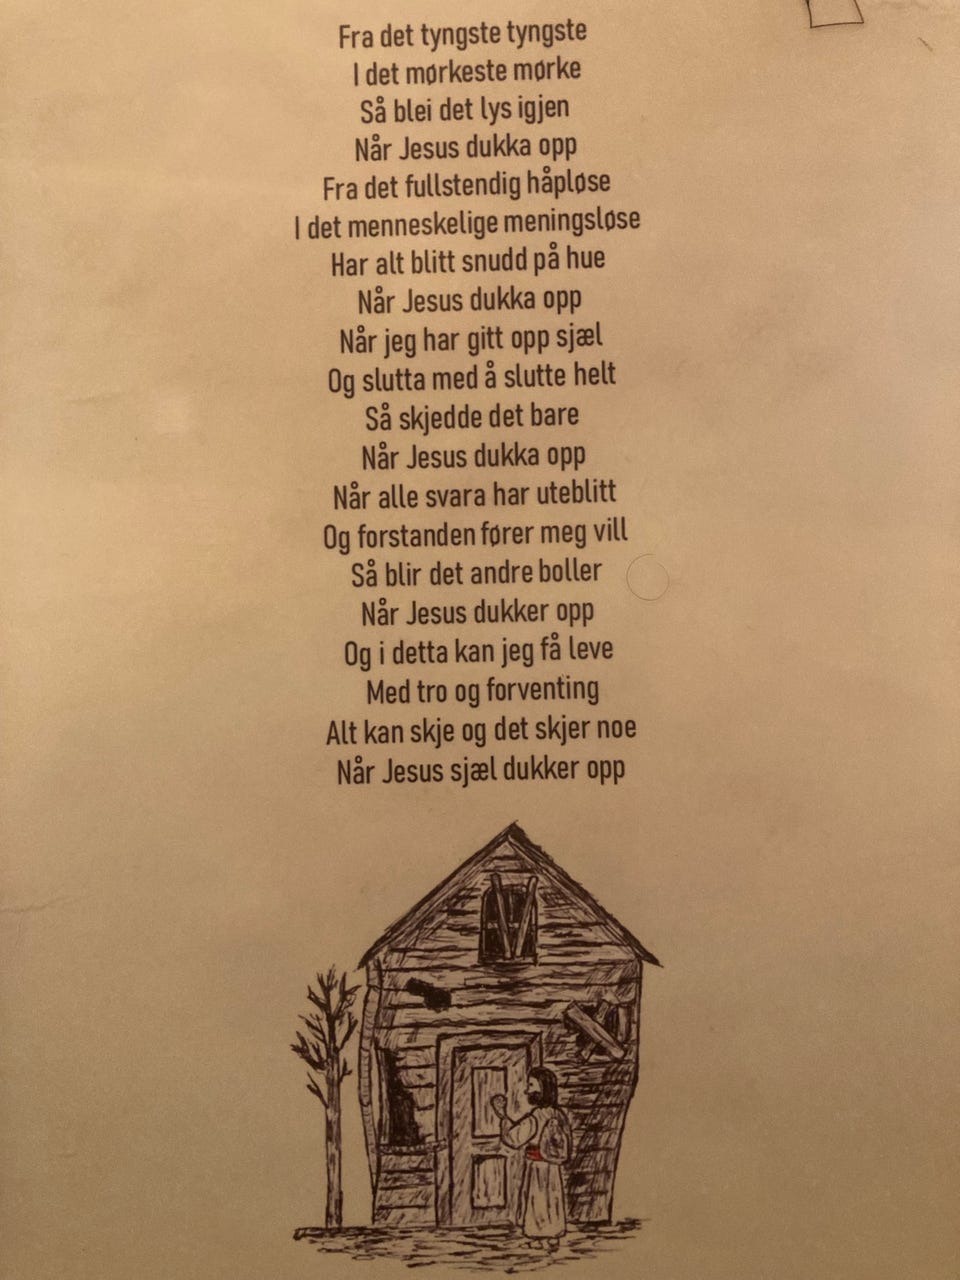 Fra det tyngste tyngste
I det mørkeste mørke
Så blei det lys igjen
Når Jesus dukka opp
Fra det fullstendig håpløse
I det menneskelige meningsløse
Har alt blitt snudd på hue
Når Jesus dukka opp
Når jeg har gitt opp sjæl
Og slutta med å slutte helt
Så skjedde det bare
Når Jesus dukka opp
Når alle svara har uteblitt
Og forstanden fører meg vill
Så blir det andre boller
Når Jesus dukker opp
Og i detta kan jeg få leve
Med tro og forventing
Alt kan skje og det skjer noe
Når Jesus sjæl dukker opp